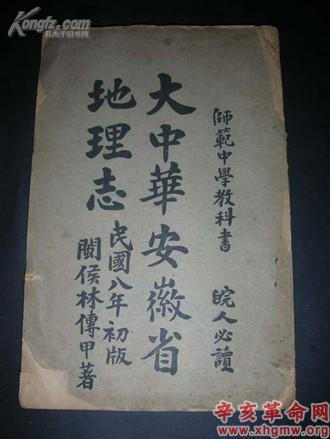 Kongfz.com
孔夫子旧书网
師範中學教科書 皖人必讀
大中華安徽省
地理志
民國八年初版
閩侯林傳甲著
辛亥革命网
www.xhgmw.org